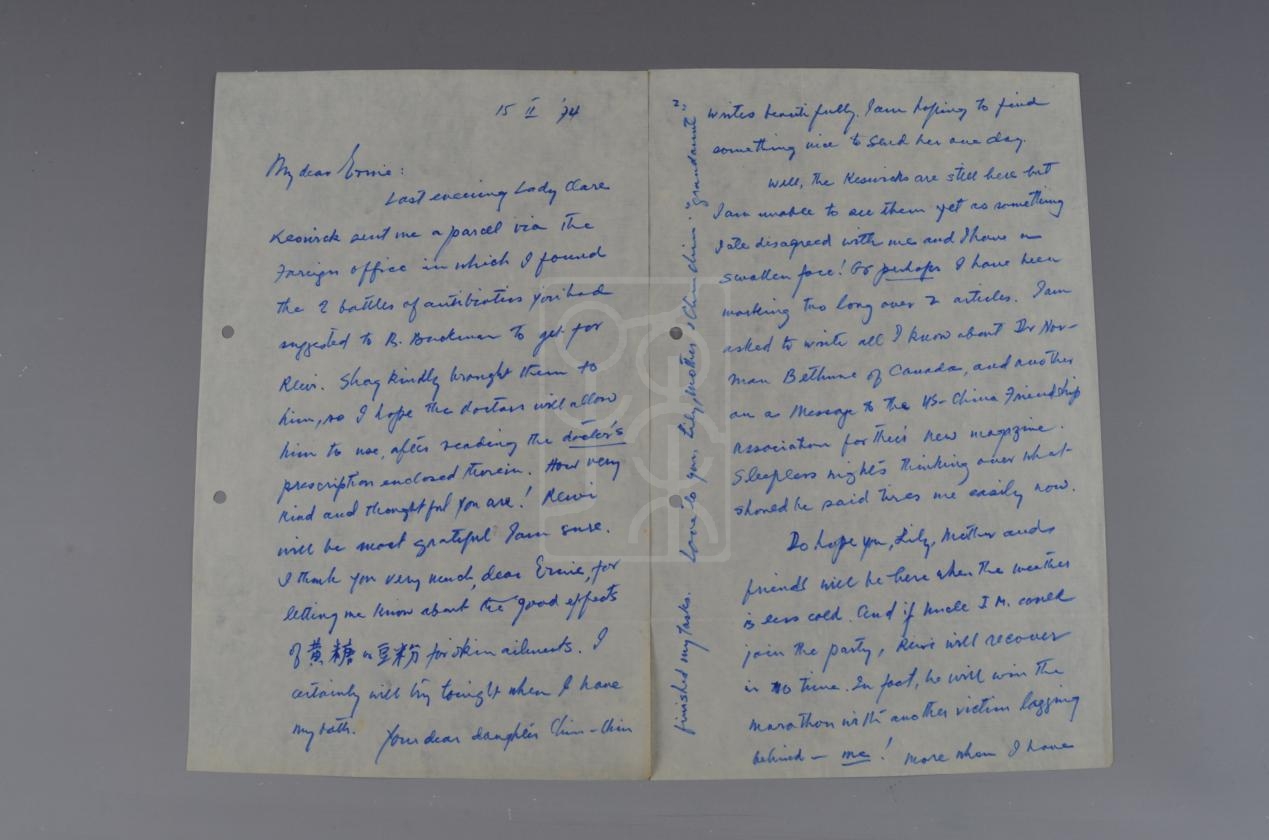 15 II '74
My dear Ernie:
Last evening Lady Clare
Keswick sent me a parcel via the
Foreign office in which I found
the 2 bottles of antibiotics you had
suggested to B. to get for
Rewi. Shag kindly brought them to
him, so I hope the doctors will allow
him to use, after reading the doctor's
prescription enclosed therein. How very
kind and thoughtful you are! Rewi
will be most grateful I am sure.
I thank you very much, dear Ernie, for
letting me know about the good effects
of 黄糖 豆粉 for skin ailments. I
certainly will try tonight when I have
my bath.
Your dear daughter Chin-Chin
2.
writes beautifully. I am hoping to find
something nice to send her one day.
Well, the Keswicks are still here but
I am unable to see them yet as something
I ate disagreed with me and I have a
swollen face! Or perhaps I have been
working too long over 2 articles. I am
asked to write all I know about Dr Nor-
man Bethune of Canada, and another
on a Message to the US-China Friendship
Association for their new magazine.
Sleepless nights thinking over what
should be said tires me easily now.
Do hope you, Lily, Mother and
friends will be here when the weather
is less cold. And if Uncle I.M. could
join the party, Rewi will recover
in no time. In fact, he will win the
marathon with another victim lagging
behind — me! More when I have
finished my tasks. Love to you, Lily, Mother, & Chinchin: "grandaunt"